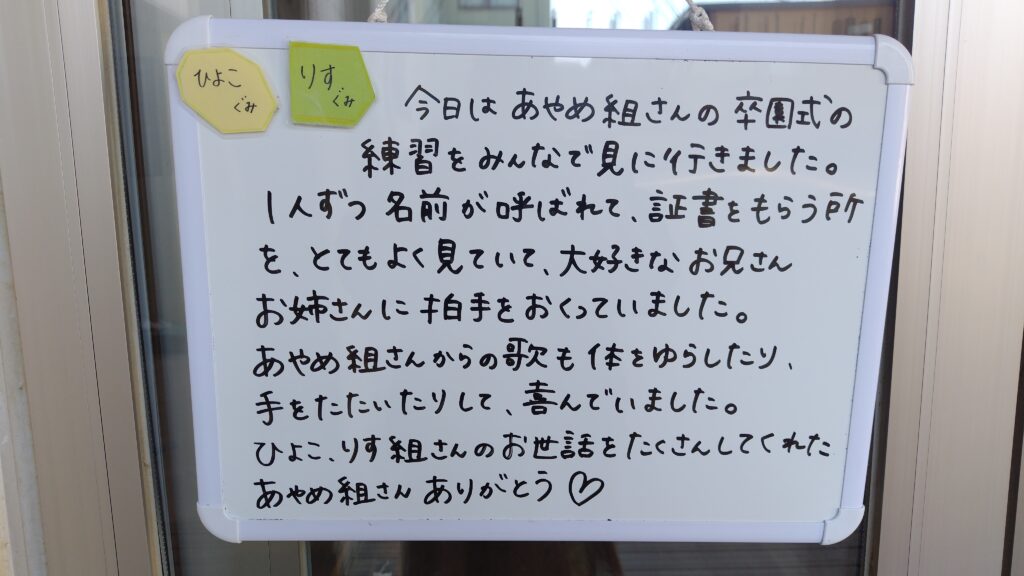 ひよこ
ぐみ
りす
ぐみ
今日は あやめ組さんの 卒園式の
練習をみんなで見に行きました。
1人ずつ 名前が呼ばれて、証書をもらう所
を、とてもよく見ていて、大好きなお兄さん
お姉さんに拍手をおくっていました。
あやめ組さんからの歌も体をゆらしたり、
手をたたいたりして、喜んでいました。
ひよこ、りす組さんのお世話をたくさんしてくれた
あやめ組さん ありがとう♡